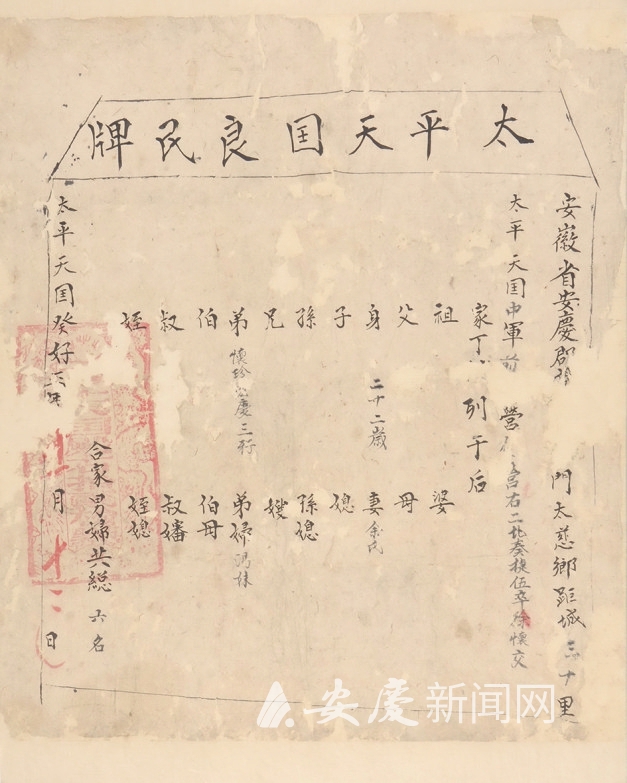 太平天囯良民牌
安徽省安慶郡 門太慈鄉距城三十里
太平天囯中軍前營 右二 伍卒徐懷交
家丁 列于后
祖 婆
父 母
身 二十二歲 妻余氏
子 媳
孫 孫媳
兄 嫂
弟 懷珍 慶三行 弟婦
伯 伯母
叔 叔嬸
姪 姪媳
合家男婦共總六名
太平天囯癸好三年 月十二日
安慶新闻网